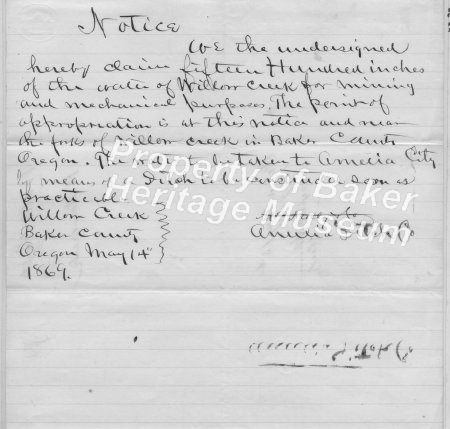 Notice
We the undersigned
hereby claim fifteen Hundred inches
of the water of Willow Creek for mining
and mechanical purposes. The point of
appropriation is at this notice and near
the forks of Willow creek in Baker County
Oregon. The to be taken to Amelia City
by means of a Ditch to be constructed soon as
practical
Willow Creek
Baker County
Oregon May 14"
1869.
Amelia Ditch Co
Property of Baker
Heritage Museum